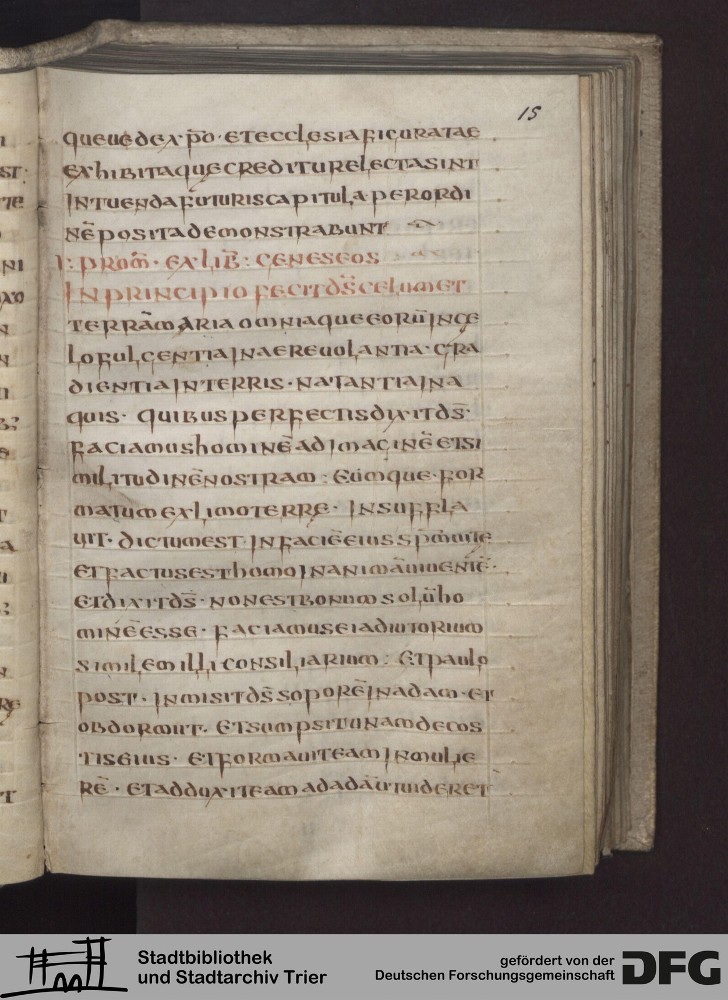 15
queuedex p̄o · etecclesiafiguratae
exhibitaquecreditureLectasint
intuendafuturiscapitulaperordi
nēpositademonstrabunt
I: prom̄ · ex lib̄: geneseos
In principiofecitds̄celumet
terrāmariaomniaqueeorū inge
lofulgentia inaereuolantia · gra
dientia interris · natantia ina
quis · quibusperfectisdixitds̄ ·
faciamushominēad imaginē etsi
militudinēnostram : eumque · for
matumexlimoterre · insuffla
uit · dictumest infaciēeius sp̄m̄uite
etfactusesthomo inanimāuiuentē ·
etdixitds̄ · nonestbonumsolūho
minēesse · faciamuseiadiutorium
similem illi consiliarium : etpaulo
post · inmisitds̄soporē inadam · et
obdormiit · etsumpsitunamdecos
tiseius · etformauiteam inmulie
rē · etadduxiteamadadāutuideret
Stadtbibliothek
und Stadtarchiv Trier
gefördert von der
Deutschen Forschungsgemeinschaft
DFG